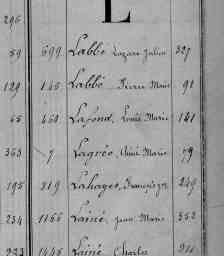 L
296
59 699 Labbé Lazare Julien 327
129 145 Labbé Pierre Marie 91
65 460 Lafond, Louis Marie 141
363 7 Lagrée, Aimé Marie 79
195 319 Lahayes, François 249
234 1166 Lainé, Jean Marie 553
233 1445 Lainé Charles